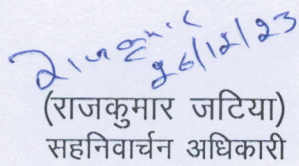 राजकुमार
26/12/23
(राजकुमार जटिया)
सहनिवार्चन अधिकारी